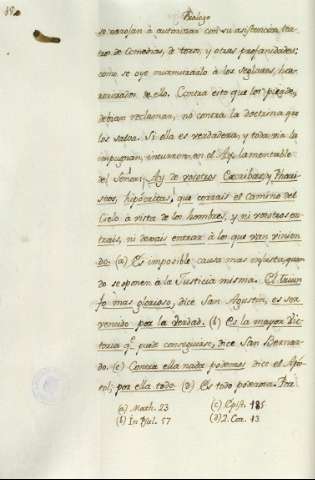 Prologo
se arrojan à autorizar con su asistencia tea-
tros de Comedias, de toros, y otras profanidades;
como se oye murmurarlo à los seglares, hor-
rorizados de ello. Contra esto que los pierde,
debian reclamar, nó contra la doctrina que
los salva. Si ella es verdadera, y todavia la
impugnan, incurren en el Ay lamentable
del Señor: Ay de vosotros Escribas, y Phari-
seos, hipócritas, que cerrais el camino del
Cielo à vista de los hombres, y ni vosotros en-
trais, ni dexais entrar à los que van vinien-
do. (a) Es imposible causa mas injusta, quan-
do se oponen à la Justicia misma. El triun-
fo mas glorioso, dice San Agustin, es ser
vencido por la verdad. (b) Es la mayor Vic-
toria q.e puede conseguirse, dice San Bernar-
do. (c) Contra ella nada podemos dice el Apos-
tol; por ella todo. (d) Es todo poderosa. Por
(a) Math. 23 (c) Epist. 185
(b) In Psal. 57 (d) 2. Cor. 13